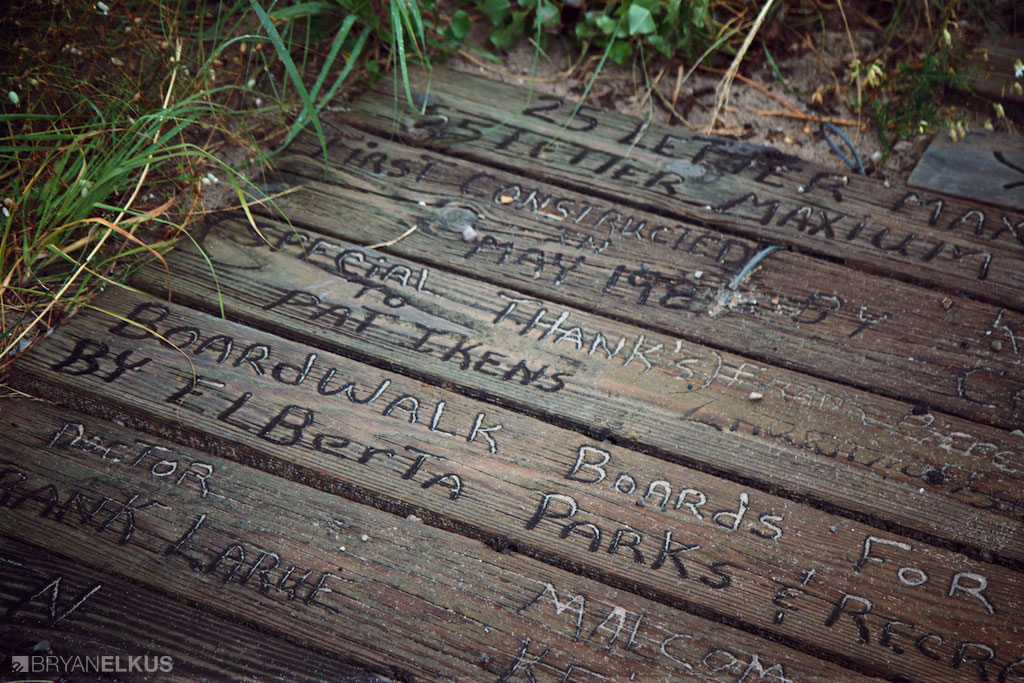 25 LETTER MAX
35 LETTER MAXIUM
FIRST CONSTRUCTED
IN
MAY 198 BY
(SPECIAL THANK'S)
TO
PAT IKENS
BOARDWALK BOARDS FOR
BY ELBERTA PARKS & RECR
DOCTOR
FRANK LARUE
MALCOM
KE
N
BRYANELKUS